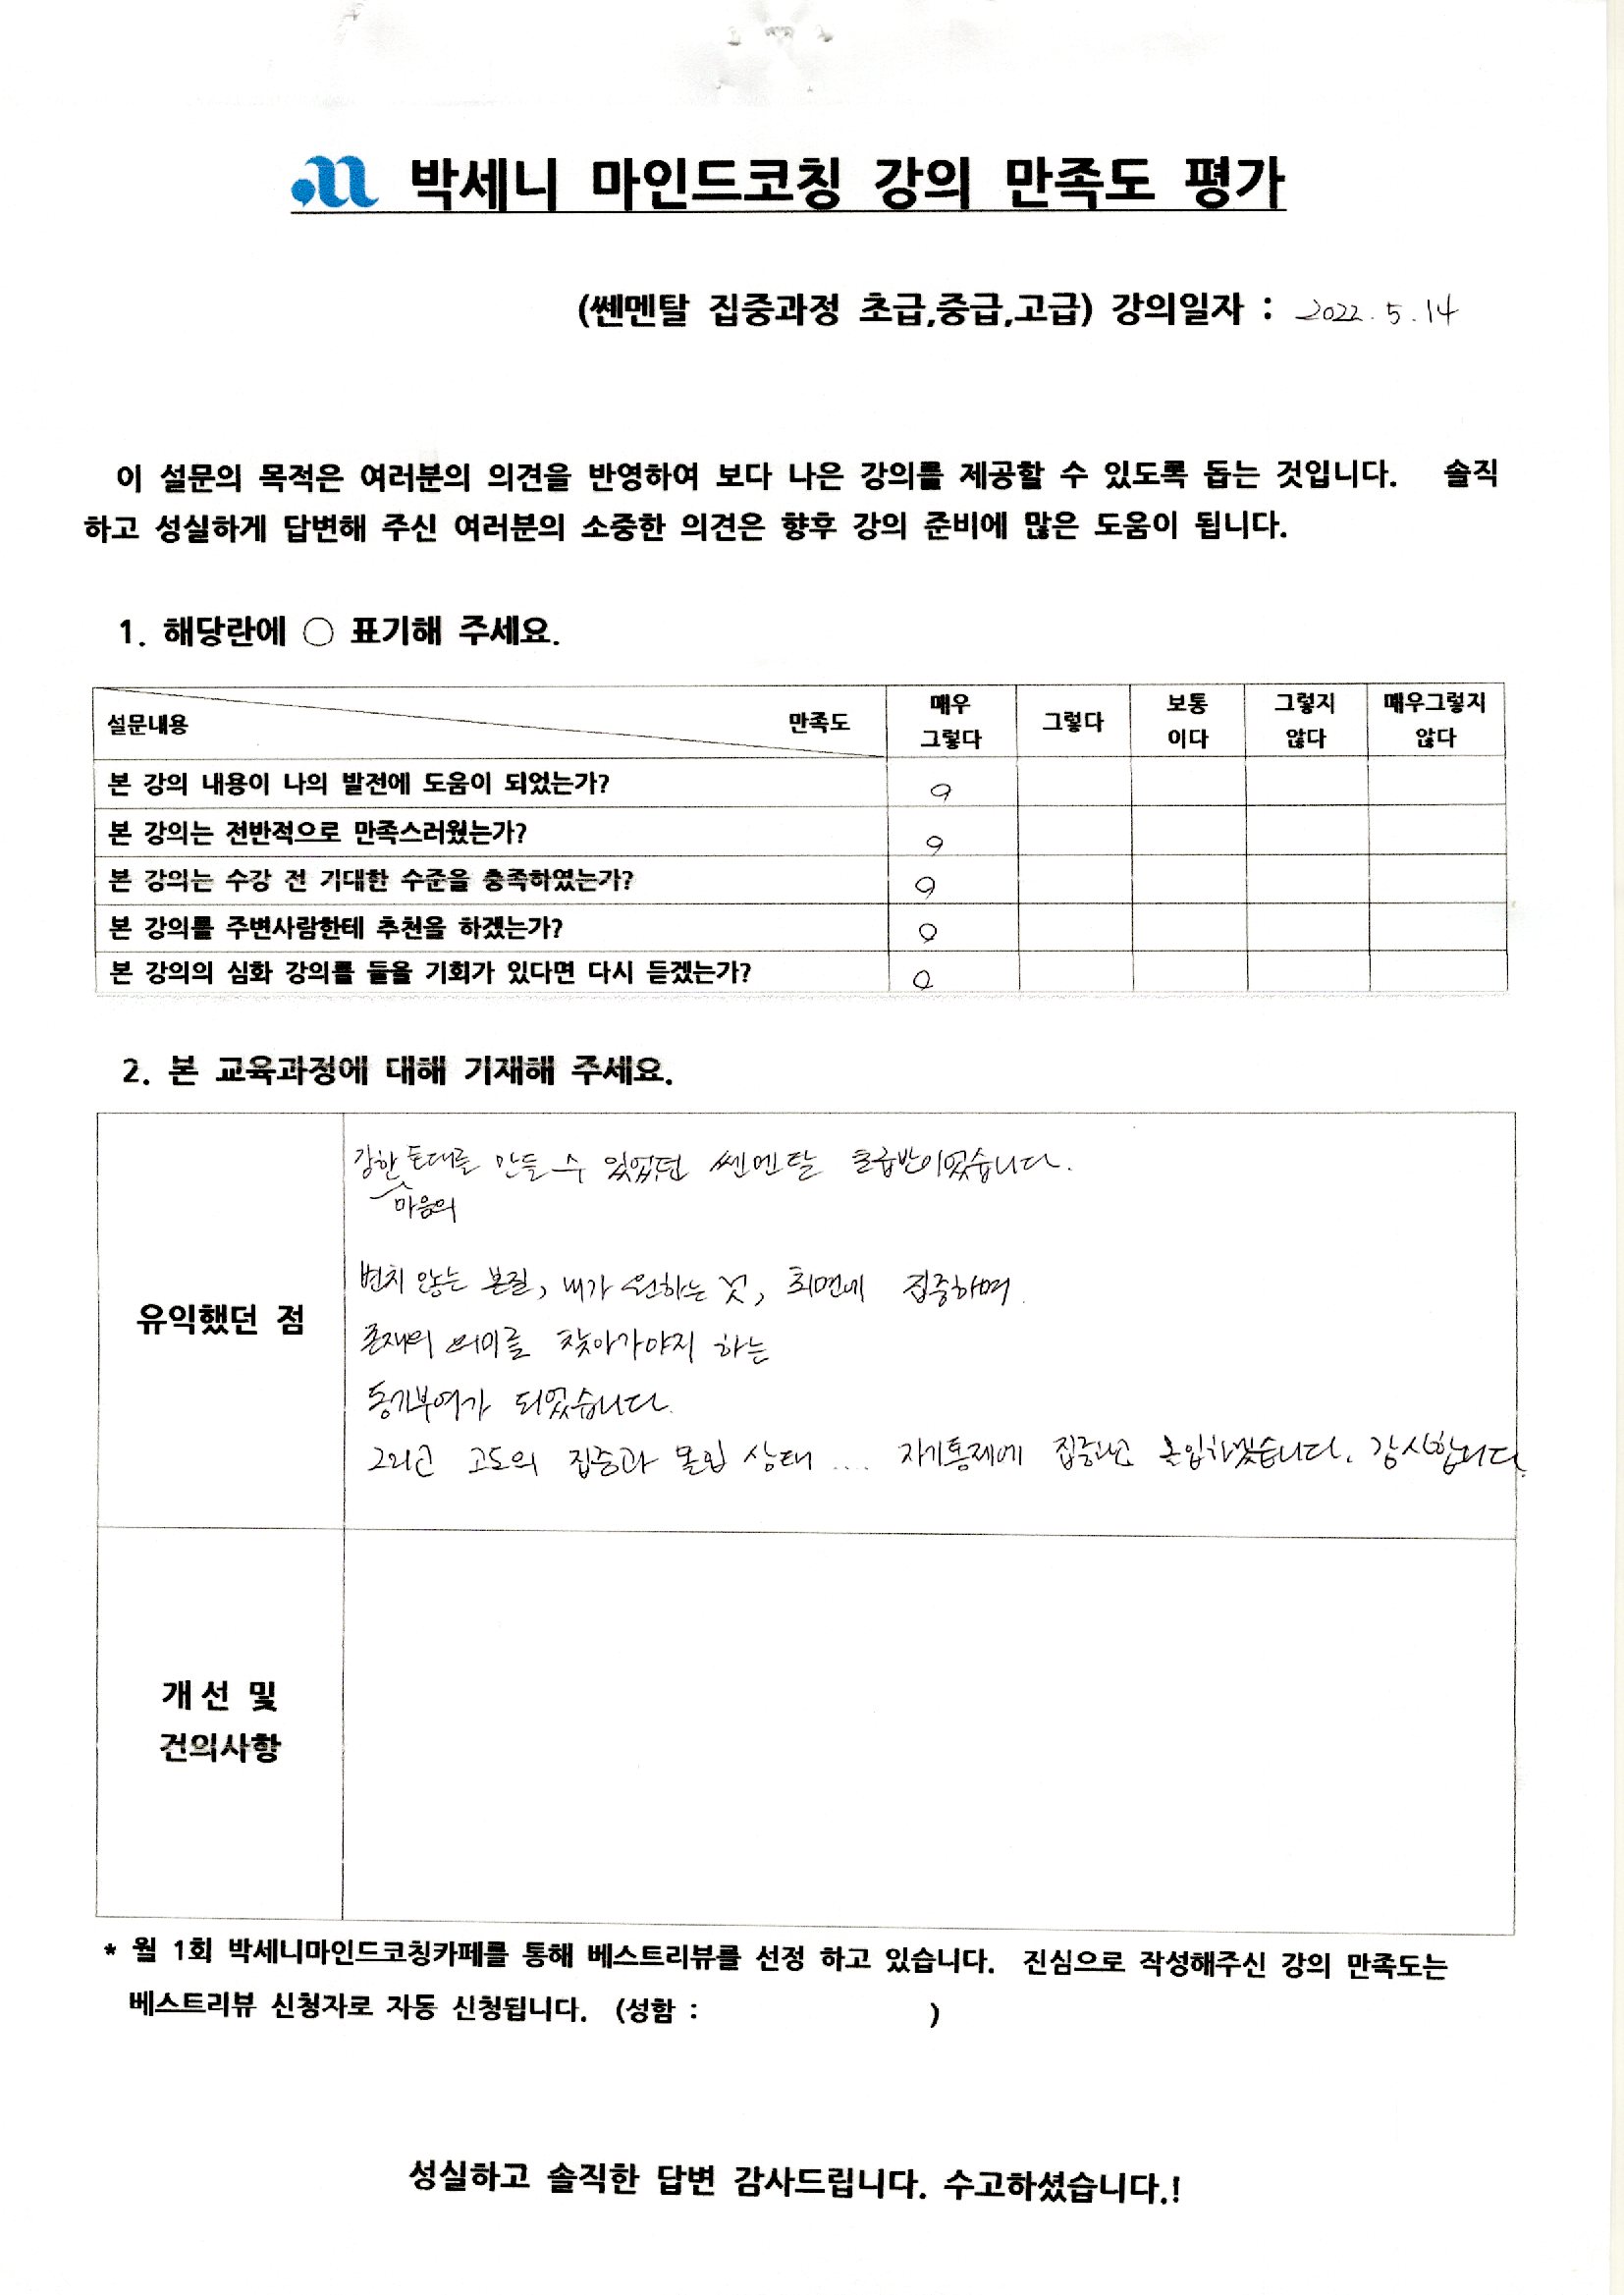 박세니 마인드코칭 강의 만족도 평가
(쎈멘탈 집중과정 초급,중급,고급) 강의일자 : 2022. 5. 14
이 설문의 목적은 여러분의 의견을 반영하여 보다 나은 강의를 제공할 수 있도록 돕는 것입니다. 솔직
하고 성실하게 답변해 주신 여러분의 소중한 의견은 향후 강의 준비에 많은 도움이 됩니다.
1. 해당란에 ○ 표기해 주세요.
설문내용 만족도 매우 그렇다 그렇다 보통 이다 그렇지 않다 매우그렇지 않다
본 강의 내용이 나의 발전에 도움이 되었는가? ○
본 강의는 전반적으로 만족스러웠는가? ○
본 강의는 수강 전 기대한 수준을 충족하였는가? ○
본 강의를 주변사람한테 추천을 하겠는가? ○
본 강의의 심화 강의를 들을 기회가 있다면 다시 듣겠는가? ○
2. 본 교육과정에 대해 기재해 주세요.
유익했던 점
강한 토대를 만들 수 있었던 쎈멘탈 이었습니다.
마음의
변치 않는 본질, 내가 원하는 것, 최면에 집중하며
존재의 의미를 찾아가야지 하는
동기부여가 되었습니다.
그리고 고도의 집중과 몰입 상태 .... 자기통제에 집중하고 몰입하겠습니다. 감사합니다.
개선 및
건의사항
* 월 1회 박세니마인드코칭카페를 통해 베스트리뷰를 선정 하고 있습니다. 진심으로 작성해주신 강의 만족도는
베스트리뷰 신청자로 자동 신청됩니다. (성함 : )
성실하고 솔직한 답변 감사드립니다. 수고하셨습니다.!